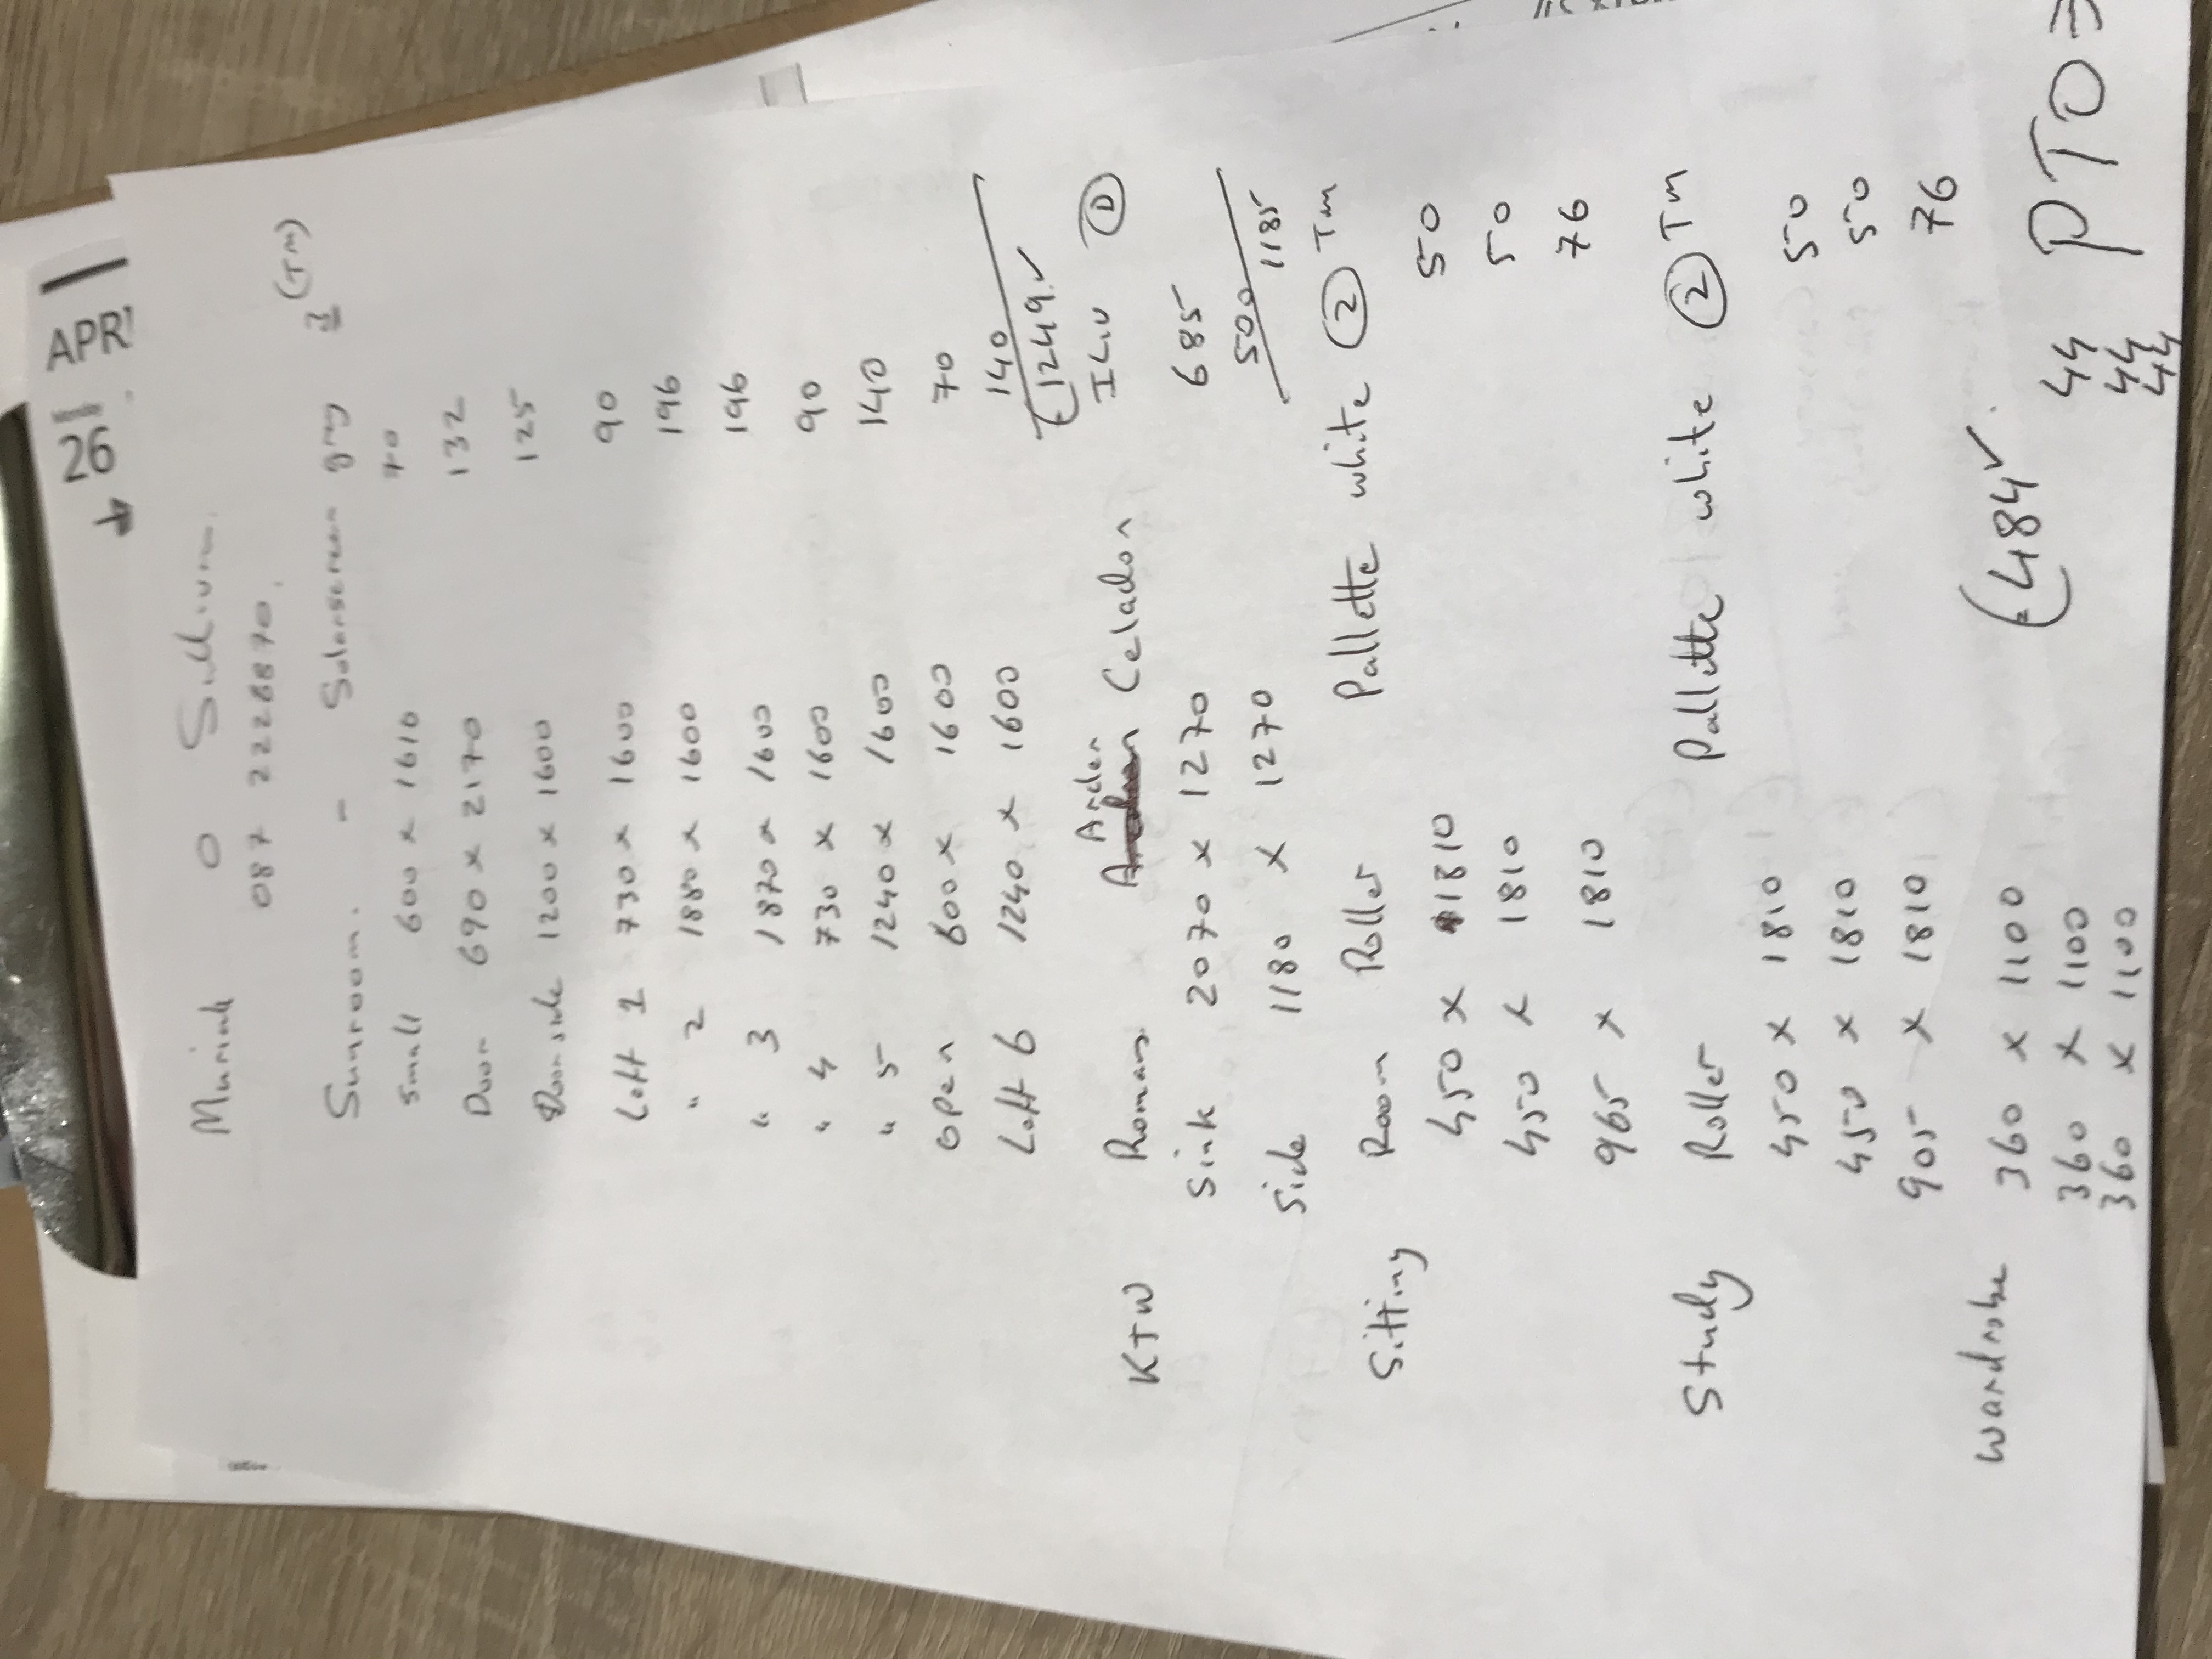 26 APR
Muriade O Sullivan.
087 2228870.
Sunroom. - Solarscreen grey 3 (TM)
Small 600 x 1610 70
Door 690 x 2170 132
Doorside 1200 x 1600 125
Loft 1 730 x 1600 90
" 2 1880 x 1600 196
" 3 1870 x 1600 196
" 4 730 x 1600 90
" 5 1240 x 1600 140
open 600 x 1600 70
Loft 6 1240 x 1600 140
€1249 ✓
KTW Romans Arden Celadon ILIV (D)
Sink 2070 x 1270 685
Side 1180 x 1270 500 1185
Sitting Room Roller Pallette white (2) TM
450 x 1810 50
450 x 1810 50
965 x 1810 76
Study Roller Pallette white (2) TM
450 x 1810 50
450 x 1810 50
905 x 1810 76
Wardrobe 360 x 1100 €484 ✓ 44
360 x 1100 44
360 x 1100 44
PTO